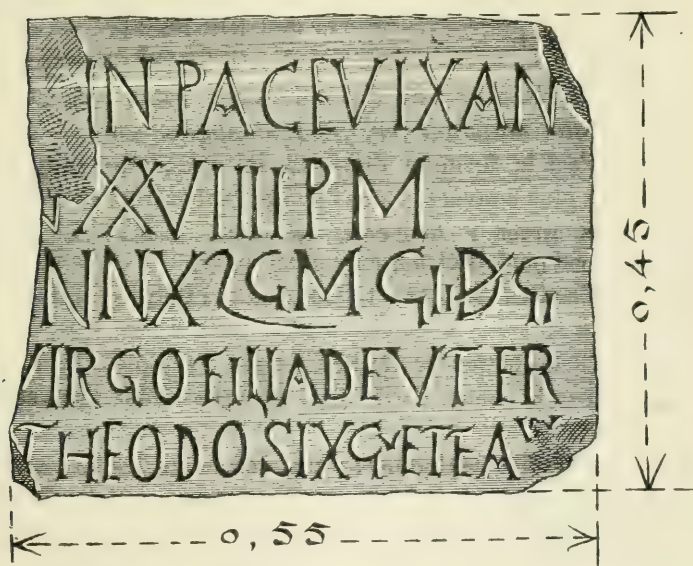 IN PACE VIXAN
XXVIIII P M
NNXLϚM ϚIIDϚII
VIRGO FILIA DEVTER
THEODOSIXϚVETEA
0,45
0,55